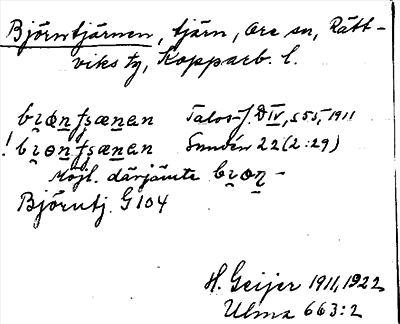 Björntjärnen, tjärn, Ore sn, Rätt-
viks tg, Kopparb. l.
bi̯ɵn̠fʂæn̠en Talos-f. DIV, s 55, 1911
! bi̯ɵn̠fʂæn̠en Sundén 22 (2:29)
Möjl. därjämte bi̯ɵn̠-
Björntj. G 104
H. Geijer 1911, 1922
Ulma 663:2